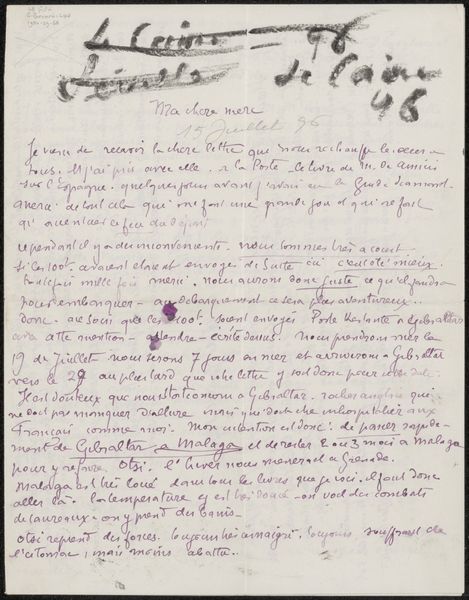 Le Caire 96
Séville
le Caire
96
Ma chere mere
15 Juillet 96
Je viens de recevoir ta chere lettre que nous rechauffe le coeur a
tous. et j'ai pris avec elle. a la Poste le livre de M. de Amicis
sur l'Espagne. quelques jours avant j'avais eu le Guide
de tout cela que me font une grande joie et qui ne fait
qu'
cependant il y a du inconvenients. nous sommes très a court
si les 100f. avaient étaient envoyés de suite mieux.
mille fois merci. nous aurons donc juste ce qu'il faudra
nous embarquer - au debarquement ce sera plus aventureux.
donc au soin que les 100f. soient envoyés Poste Restante a Gibraltar
avec cette mention - attendre - écrite dessus. nous prendrons mer le
19 de Juillet nous serons 7 jours en mer et arriverons a Gibraltar
vers le 27 au plus tard que votre lettre y soit donc pour cette date.
Il est douteux que nous a Gibraltar. rocher anglais qui
ne doit pas manquer d'allure mais qui doit être inhospitalier aux
Français comme moi. Mon intention est donc: de passer rapide-
ment de Gibraltar a Malaga et de rester 2 ou 3 mois a Malaga
pour y refaire Otsi. l'hiver nous menera a Grenade.
Malaga est très loué dans tous les livres que je vois. il faut donc
aller là. la température y est très douce - on voit des combats
de taureaux - on y prend des bains.
Otsi reprend des forces. toujours très amaigri. toujours souffrant de
l'estomac, mais moins abattu.